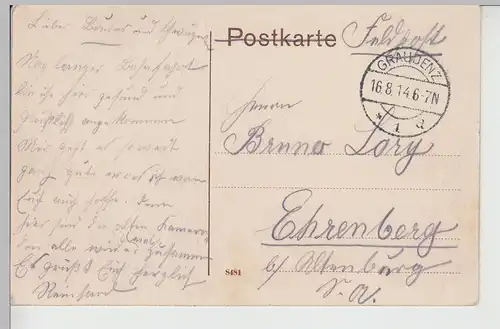 Lieber Bruno und Schwager
Postkarte Feldpost
Nach langer Bahnfahrt
bin ich hier gesund und
glücklich angekommen
Mir geht es soweit
ganz gute was ich von
Euch auch hoffe. denn
hier sind die alten Kamera
den alle wieder mal zusammen
Es grüßt Euch herzlich
Reinhard
GRAUDENZ
16.8.14.6-7N
* 1 d
Herrn
Bruno Lory
Ehrenberg
b/ Altenburg
S.-A.
8481